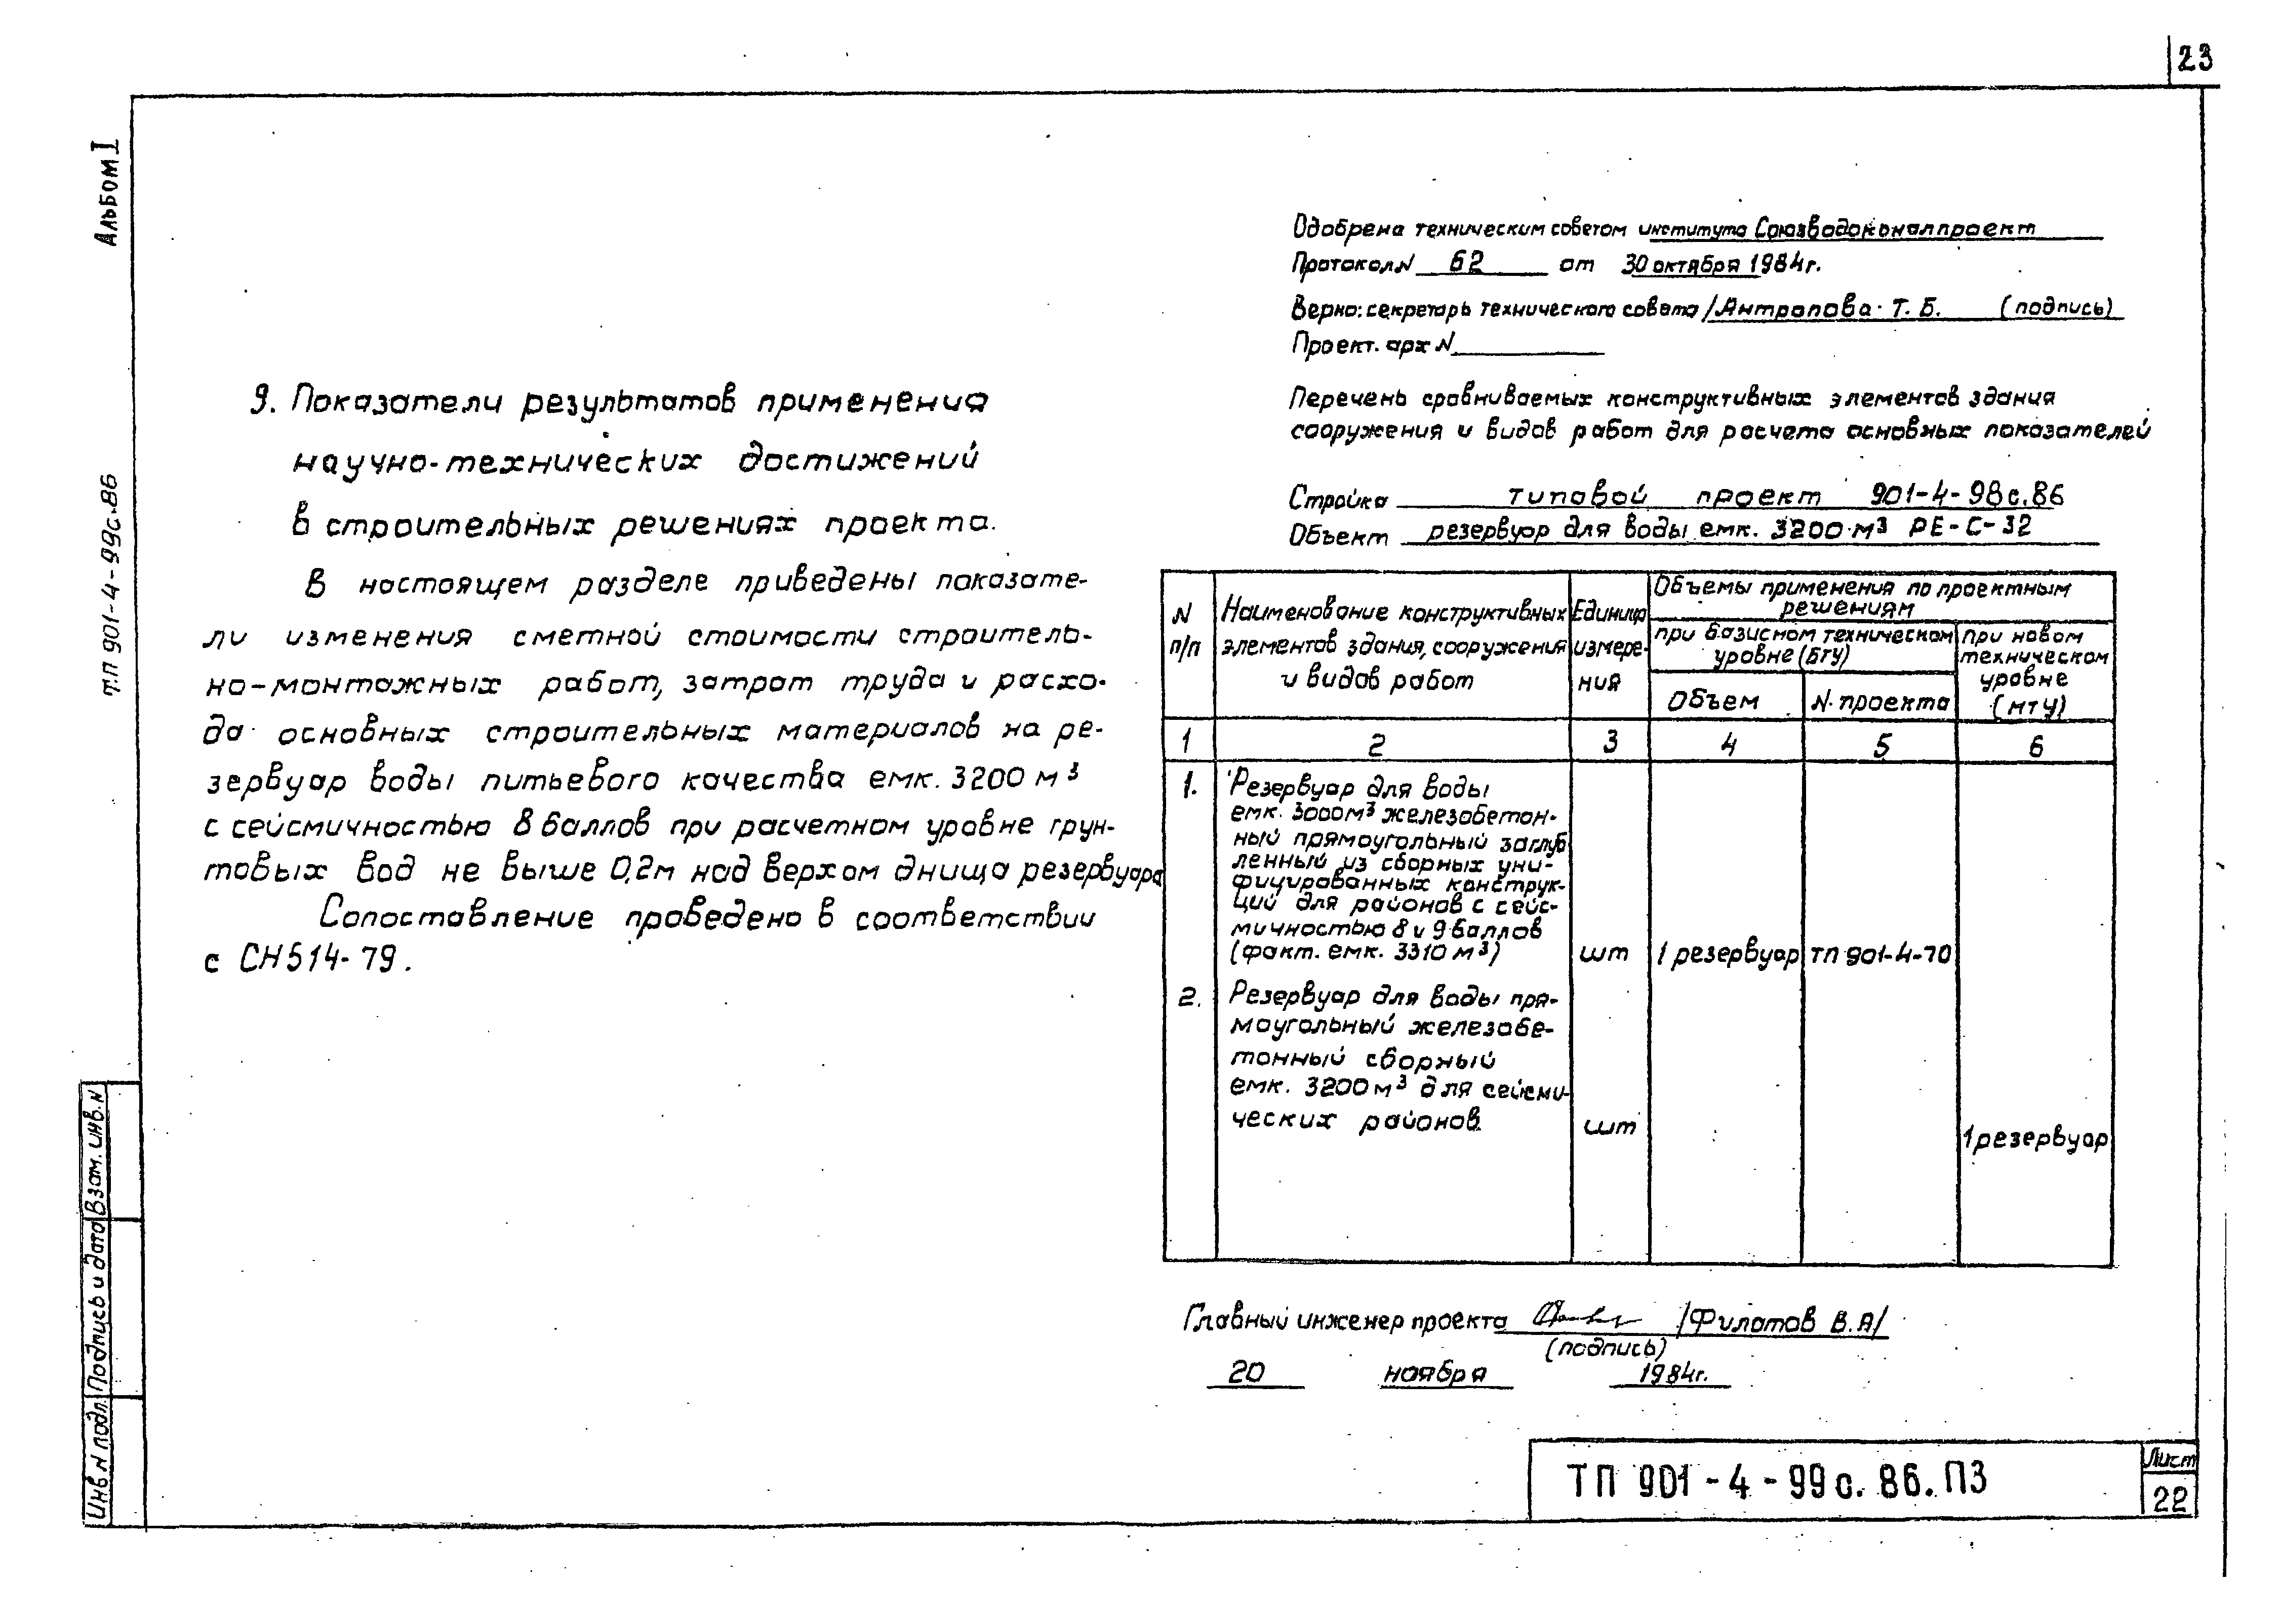 23
Альбом I
ТП 901-4-99с.86
9. Показатели результатов применения
научно-технических достижений
в строительных решениях проекта.
В настоящем разделе приведены показате-
ли изменения сметной стоимости строитель-
но-монтажных работ, затрат труда и расхо-
да основных строительных материалов на ре-
зервуар воды питьевого качества емк. 3200 м³
с сейсмичностью 8 баллов при расчетном уровне грун-
товых вод не выше 0,2м над верхом днища резервуара
Сопоставление проведено в соответствии
с СН514-79.
Одобрена техническим советом института Союзводоканалпроект
Протокол N 62 от 30 октября 1984г.
Верно: секретарь технического совета /Антропова Т.Б. (подпись)
Проект. арх N
Перечень сравниваемых конструктивных элементов здания
сооружения и видов работ для расчета основных показателей
Стройка типовой проект 901-4-98с.86
Объект резервуар для воды емк. 3200 м³ РЕ-С-32
N п/п
Наименование конструктивных
элементов здания, сооружения
и видов работ
Единица
измере-
ния
Объемы применения по проектным
решениям
при базисном техническом
уровне (БТУ)
Объем
N проекта
при новом
техническом
уровне
(НТУ)
1 2 3 4 5 6
1. Резервуар для воды
емк. 3000м³ железобетон-
ный прямоугольный заглуб
ленный из сборных уни-
фицированных конструк-
ций для районов с сейс-
мичностью 8 и 9 баллов
(факт. емк. 3310 м³) шт 1 резервуар ТП 901-4-70
2. Резервуар для воды пря-
моугольный железобе-
тонный сборный
емк. 3200м³ для сейсми-
ческих районов шт 1 резервуар
Главный инженер проекта /Филатов В.А/
(подпись)
20 ноября 1984г.
Инв N подл. Подпись и дата Взам. инв. N
ТП 901-4-99с.86.ПЗ
Лист
22